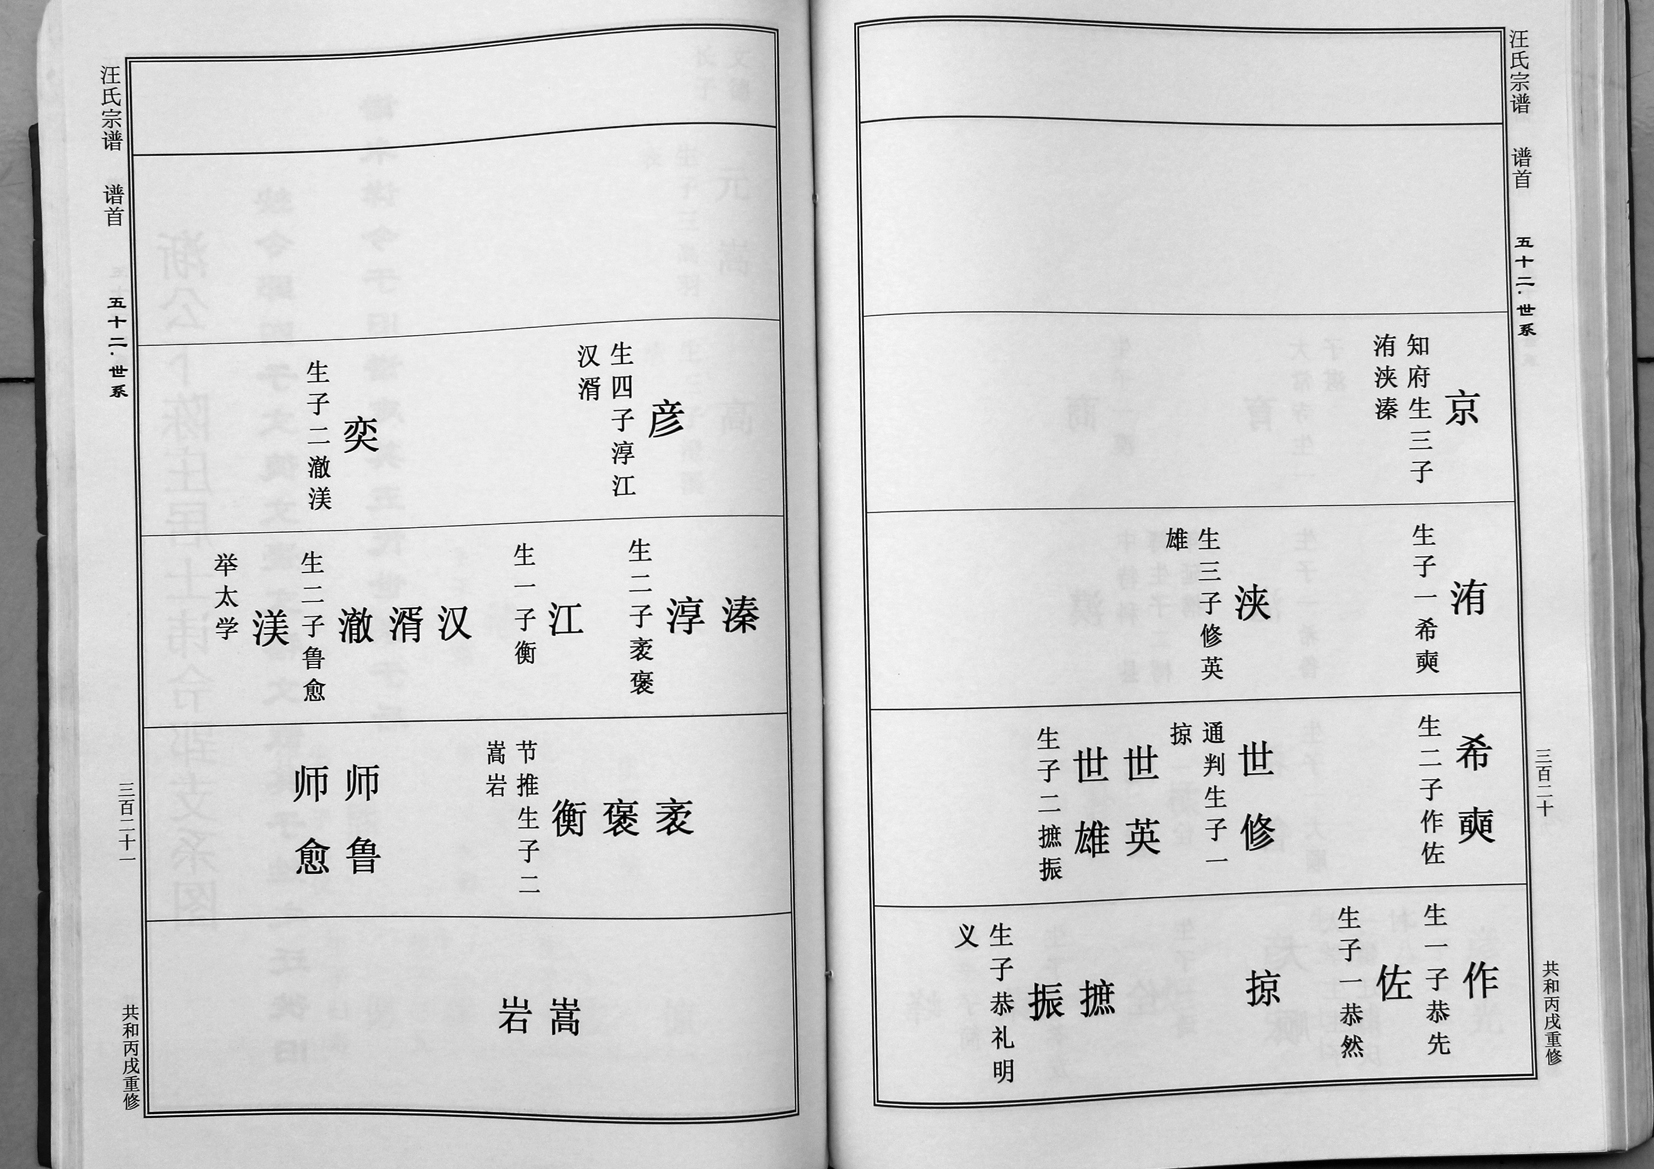 汪氏宗谱 谱首 五十二·世系 三百二十 共和丙戌重修
京
知府生三子
洧浃溱
洧
生子一希奭
浃
生三子修英
雄
希奭
生二子作佐
世修
通判生子一
掠
世英
世雄
生子二摭振
作
生一子恭先
佐
生子一恭然
掠
摭
振
生子恭礼明
义
彦
生四子淳江
汉湑
奕
生子二澈渼
溱
淳
生二子袤褒
江
生一子衡
汉
湑
澈
生二子鲁愈
渼
举太学
袤
褒
衡
节推生子二
嵩岩
师鲁
师愈
嵩
岩
汪氏宗谱 谱首 五十二·世系 三百二十一 共和丙戌重修